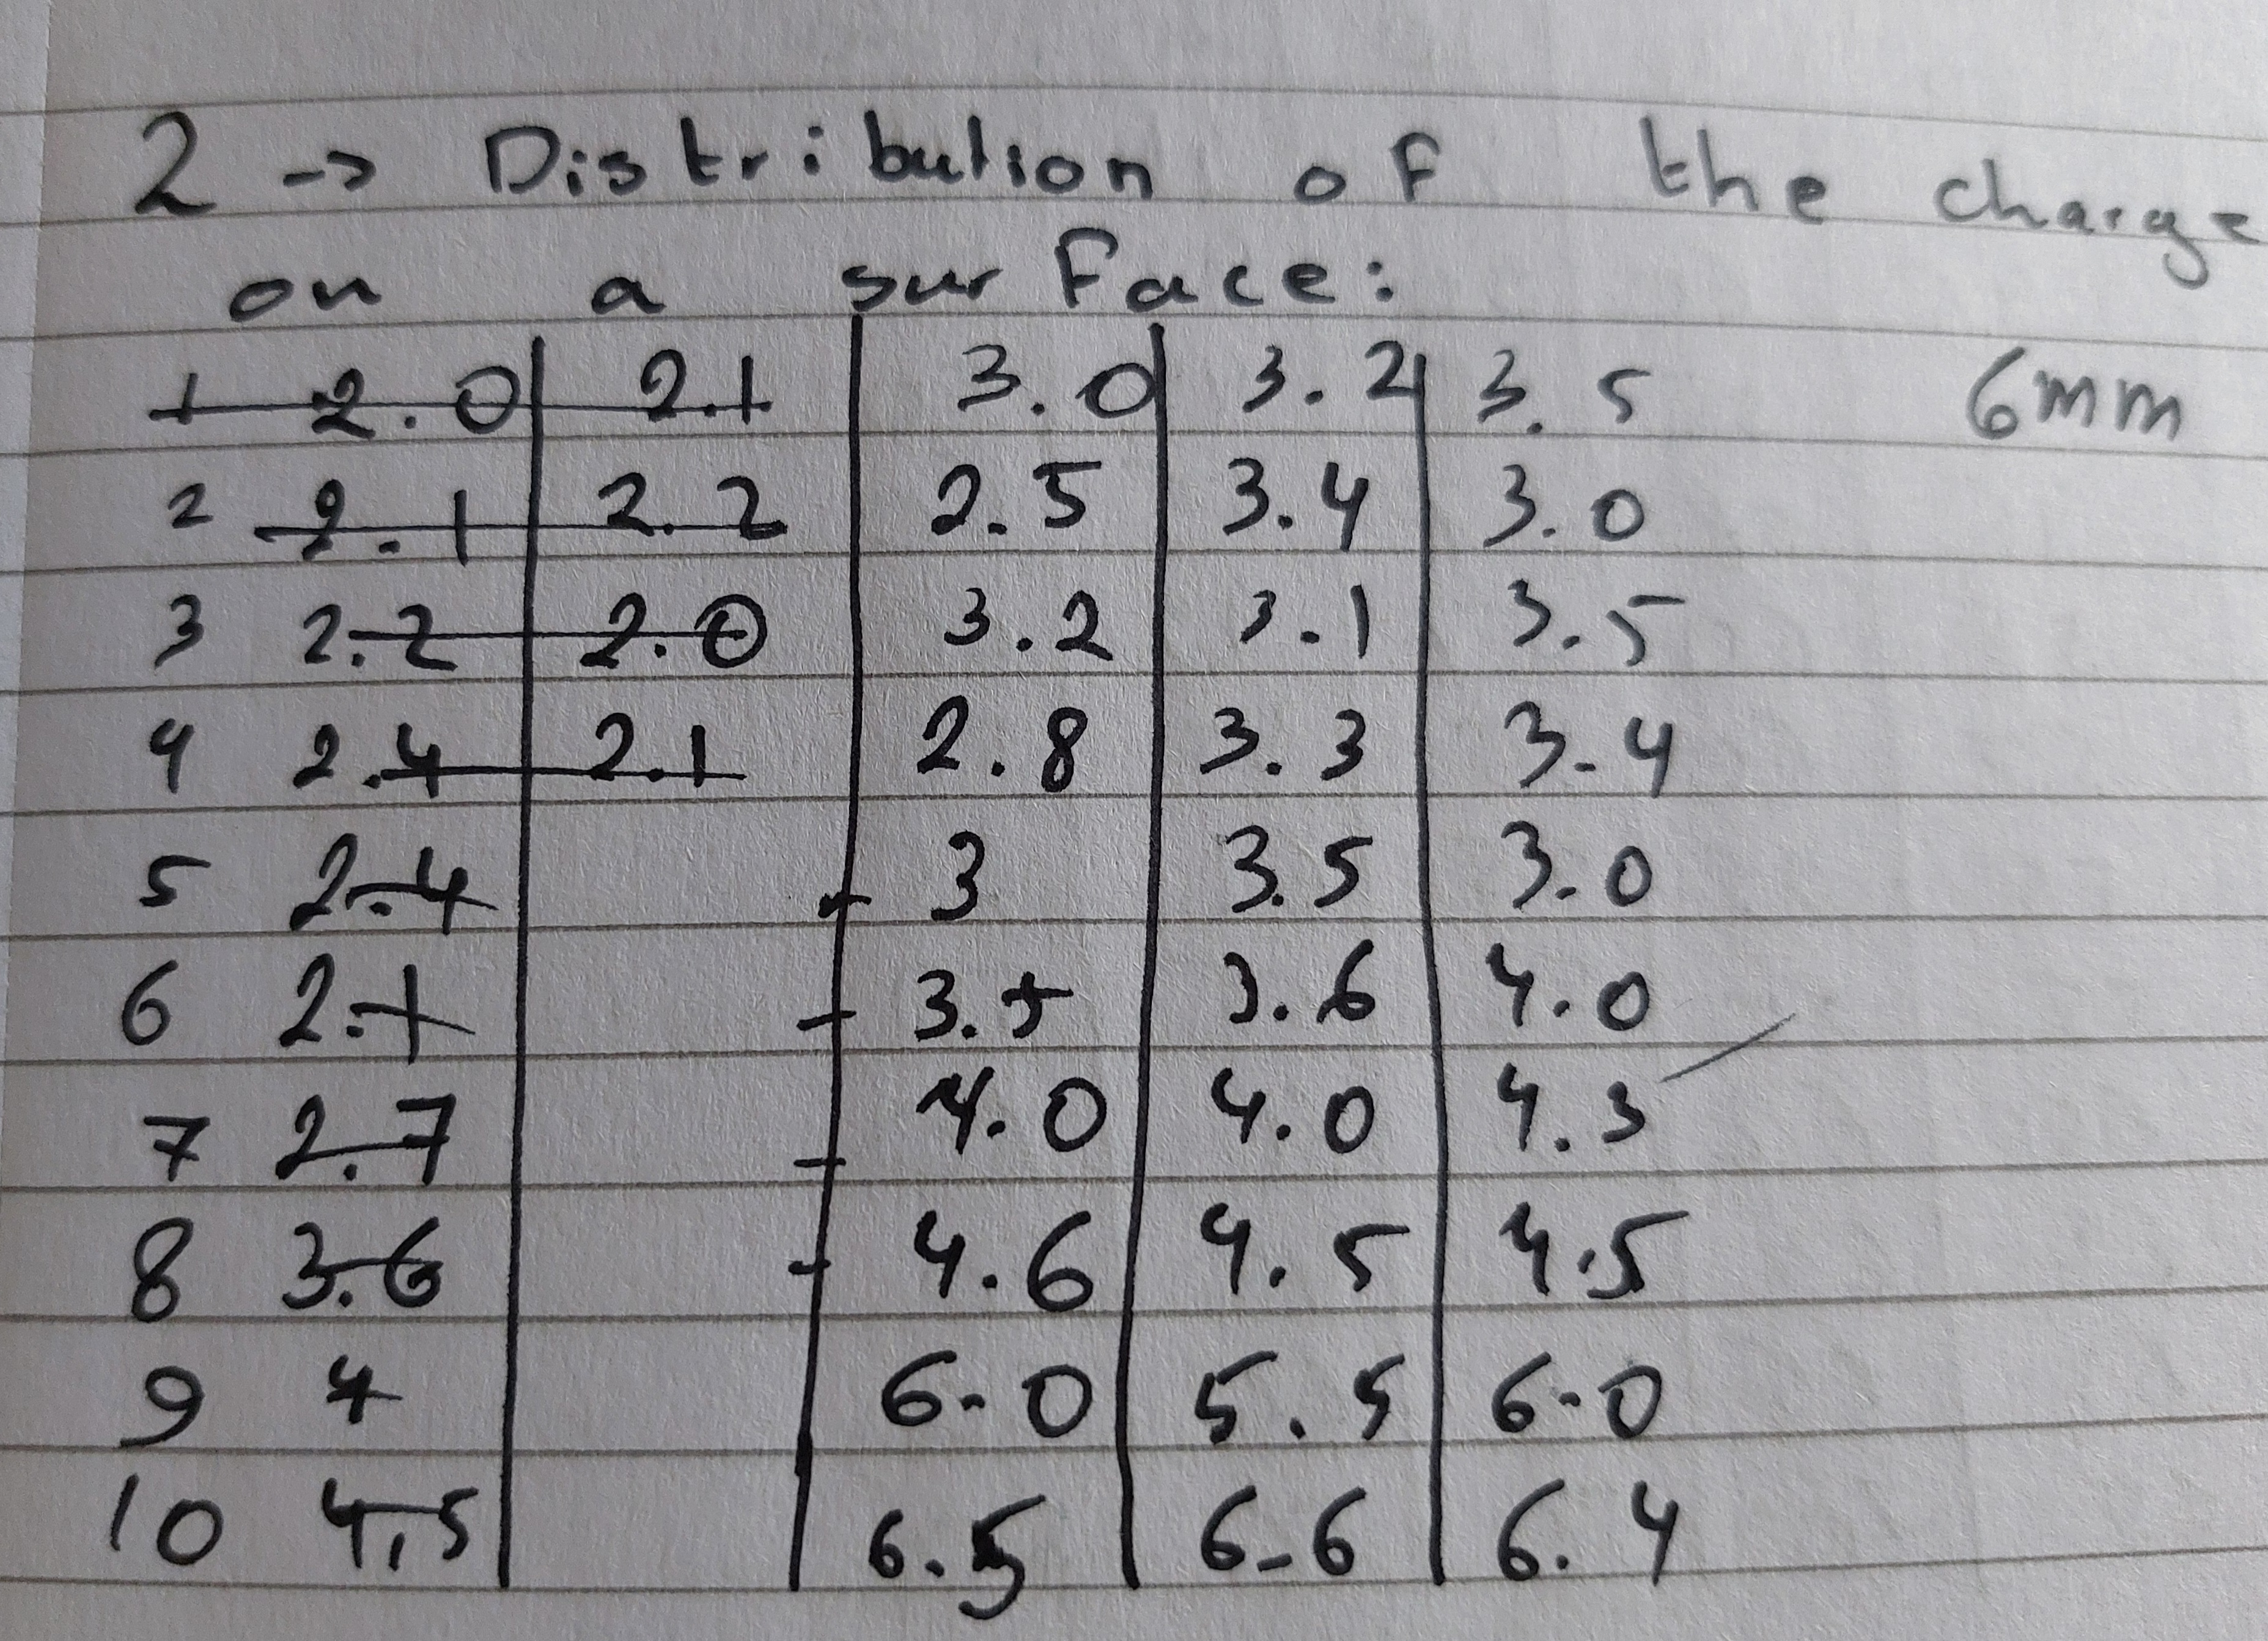 2 -> Distribution of the charge
on a surface:
1 2.0 2.1 3.0 3.2 3.5 6mm
2 2.1 2.2 2.5 3.4 3.0
3 2.2 2.0 3.2 3.1 3.5
4 2.4 2.1 2.8 3.3 3.4
5 2.4 3 3.5 3.0
6 2.1 3.5 3.6 4.0
7 2.7 4.0 4.0 4.3
8 3.6 4.6 4.5 4.5
9 4 6.0 5.5 6.0
10 4.5 6.5 6.6 6.4